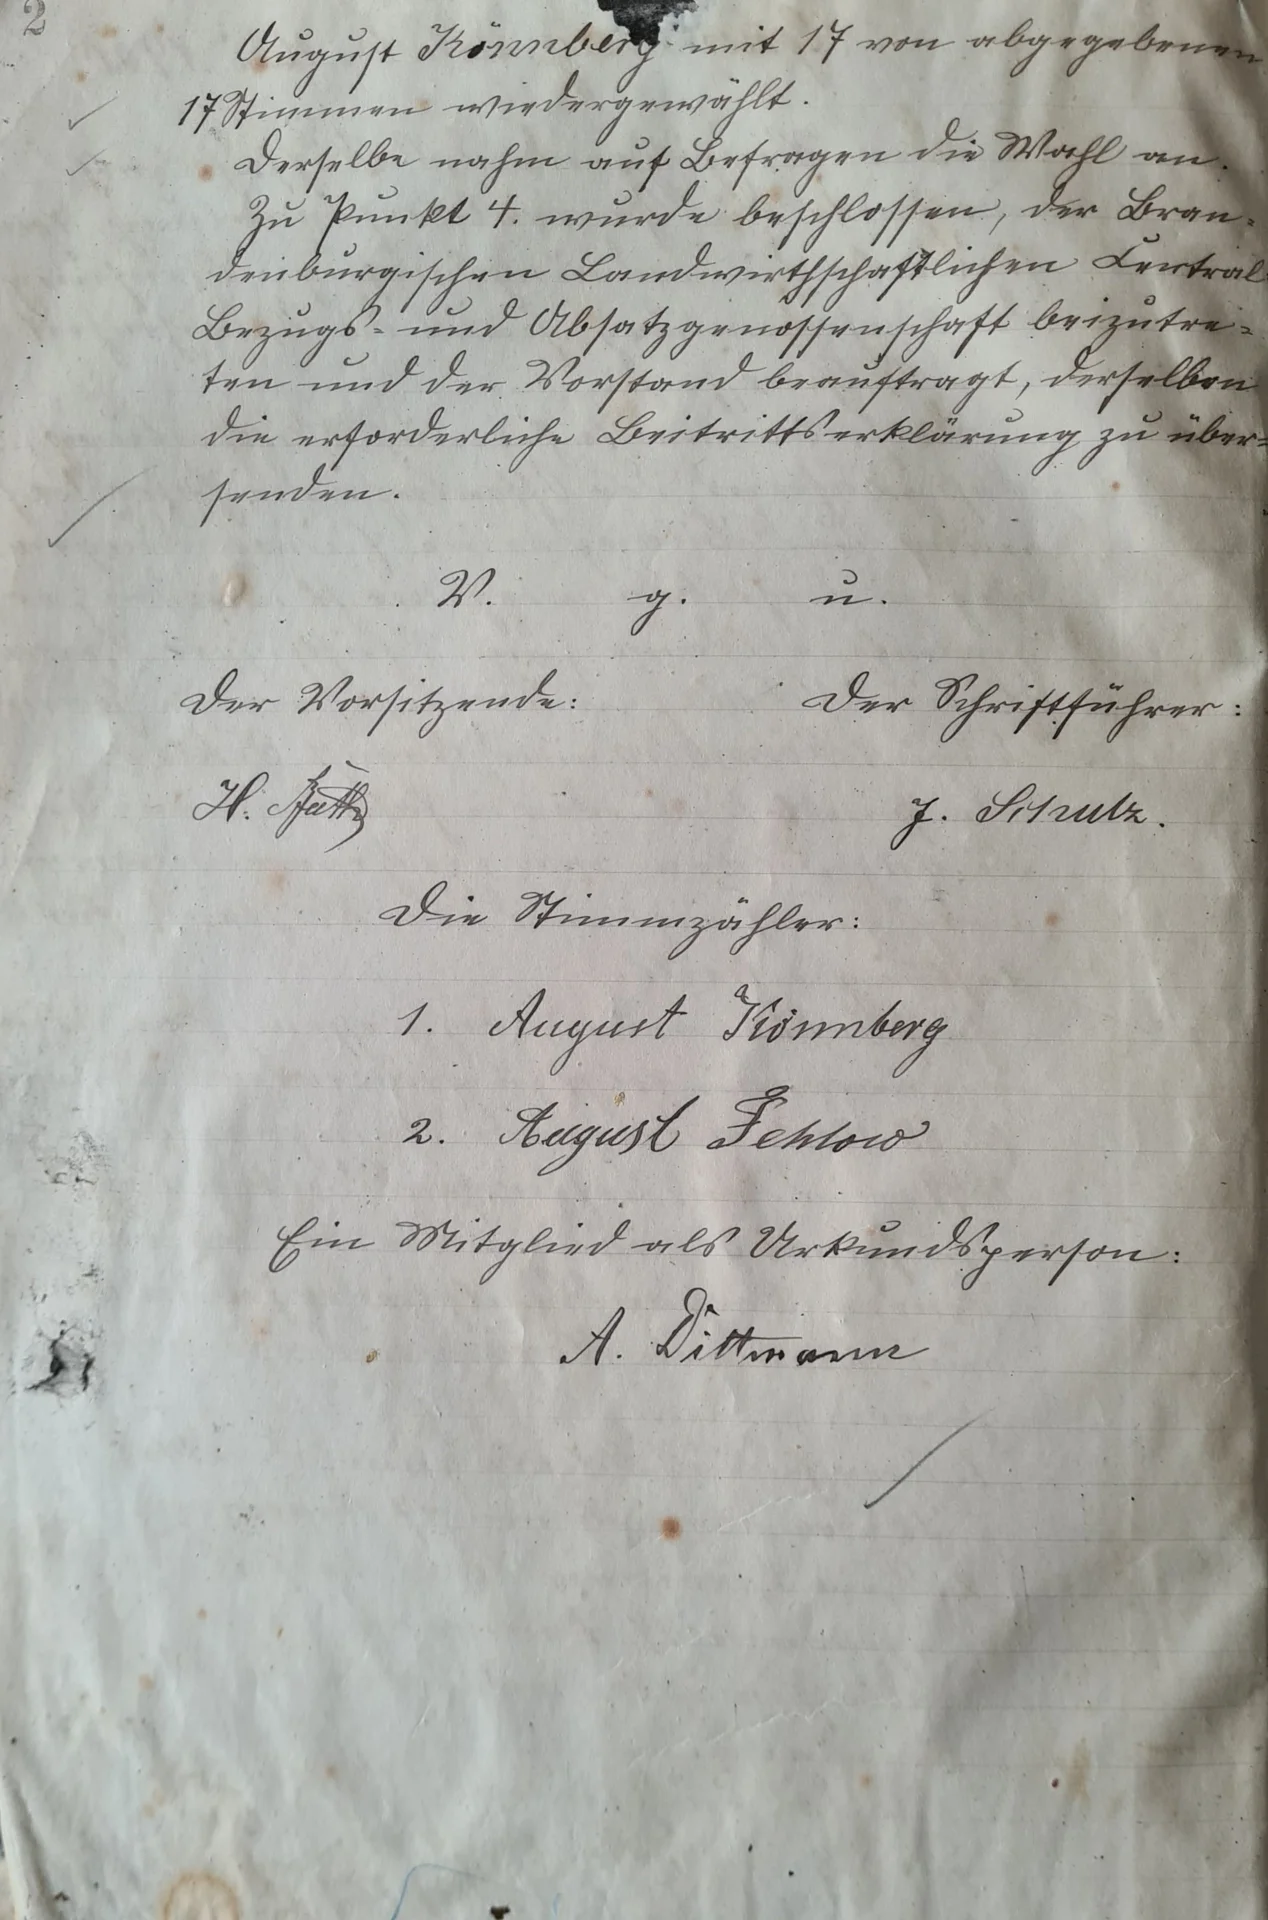 2
August Könnberg mit 17 von abgegebenen
17 Stimmen wiedergewählt.
Derselbe nahm auf Befragen die Wahl an.
Zu Punkt 4. wurde beschlossen, der Bran-
denburgischen Landwirthschaftlichen Central
Bezugs- und Absatzgenossenschaft beizutre-
ten und der Vorstand beauftragt, derselben
die erforderliche Beitrittserklärung zu über-
senden.
V. g. u.
Der Vorsitzende: Der Schriftführer:
H. J. Schulz.
Die Stimmzähler:
1. August Könnberg
2. August Fehlow
Ein Mitglied als Urkundsperson:
A. Dittmann